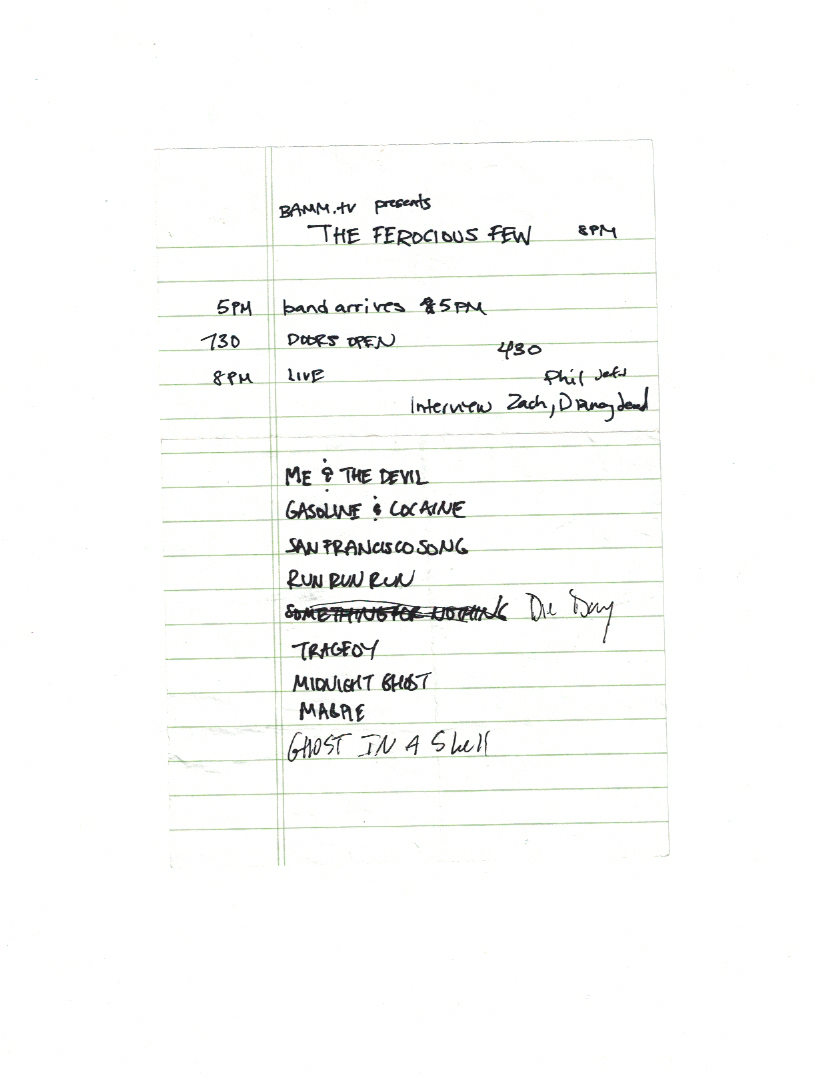 BAMM.tv presents
THE FEROCIOUS FEW 8PM
5PM band arrives 5PM
730 DOORS OPEN
430
8PM LIVE
Phil
Interview Zach,
ME & THE DEVIL
GASOLINE & COCAINE
SAN FRANCISCO SONG
RUN RUN RUN
SOMETHING FOR NOTHING Die
TRAGEDY
MIDNIGHT GHOST
MAGPIE
GHOST IN A Shell